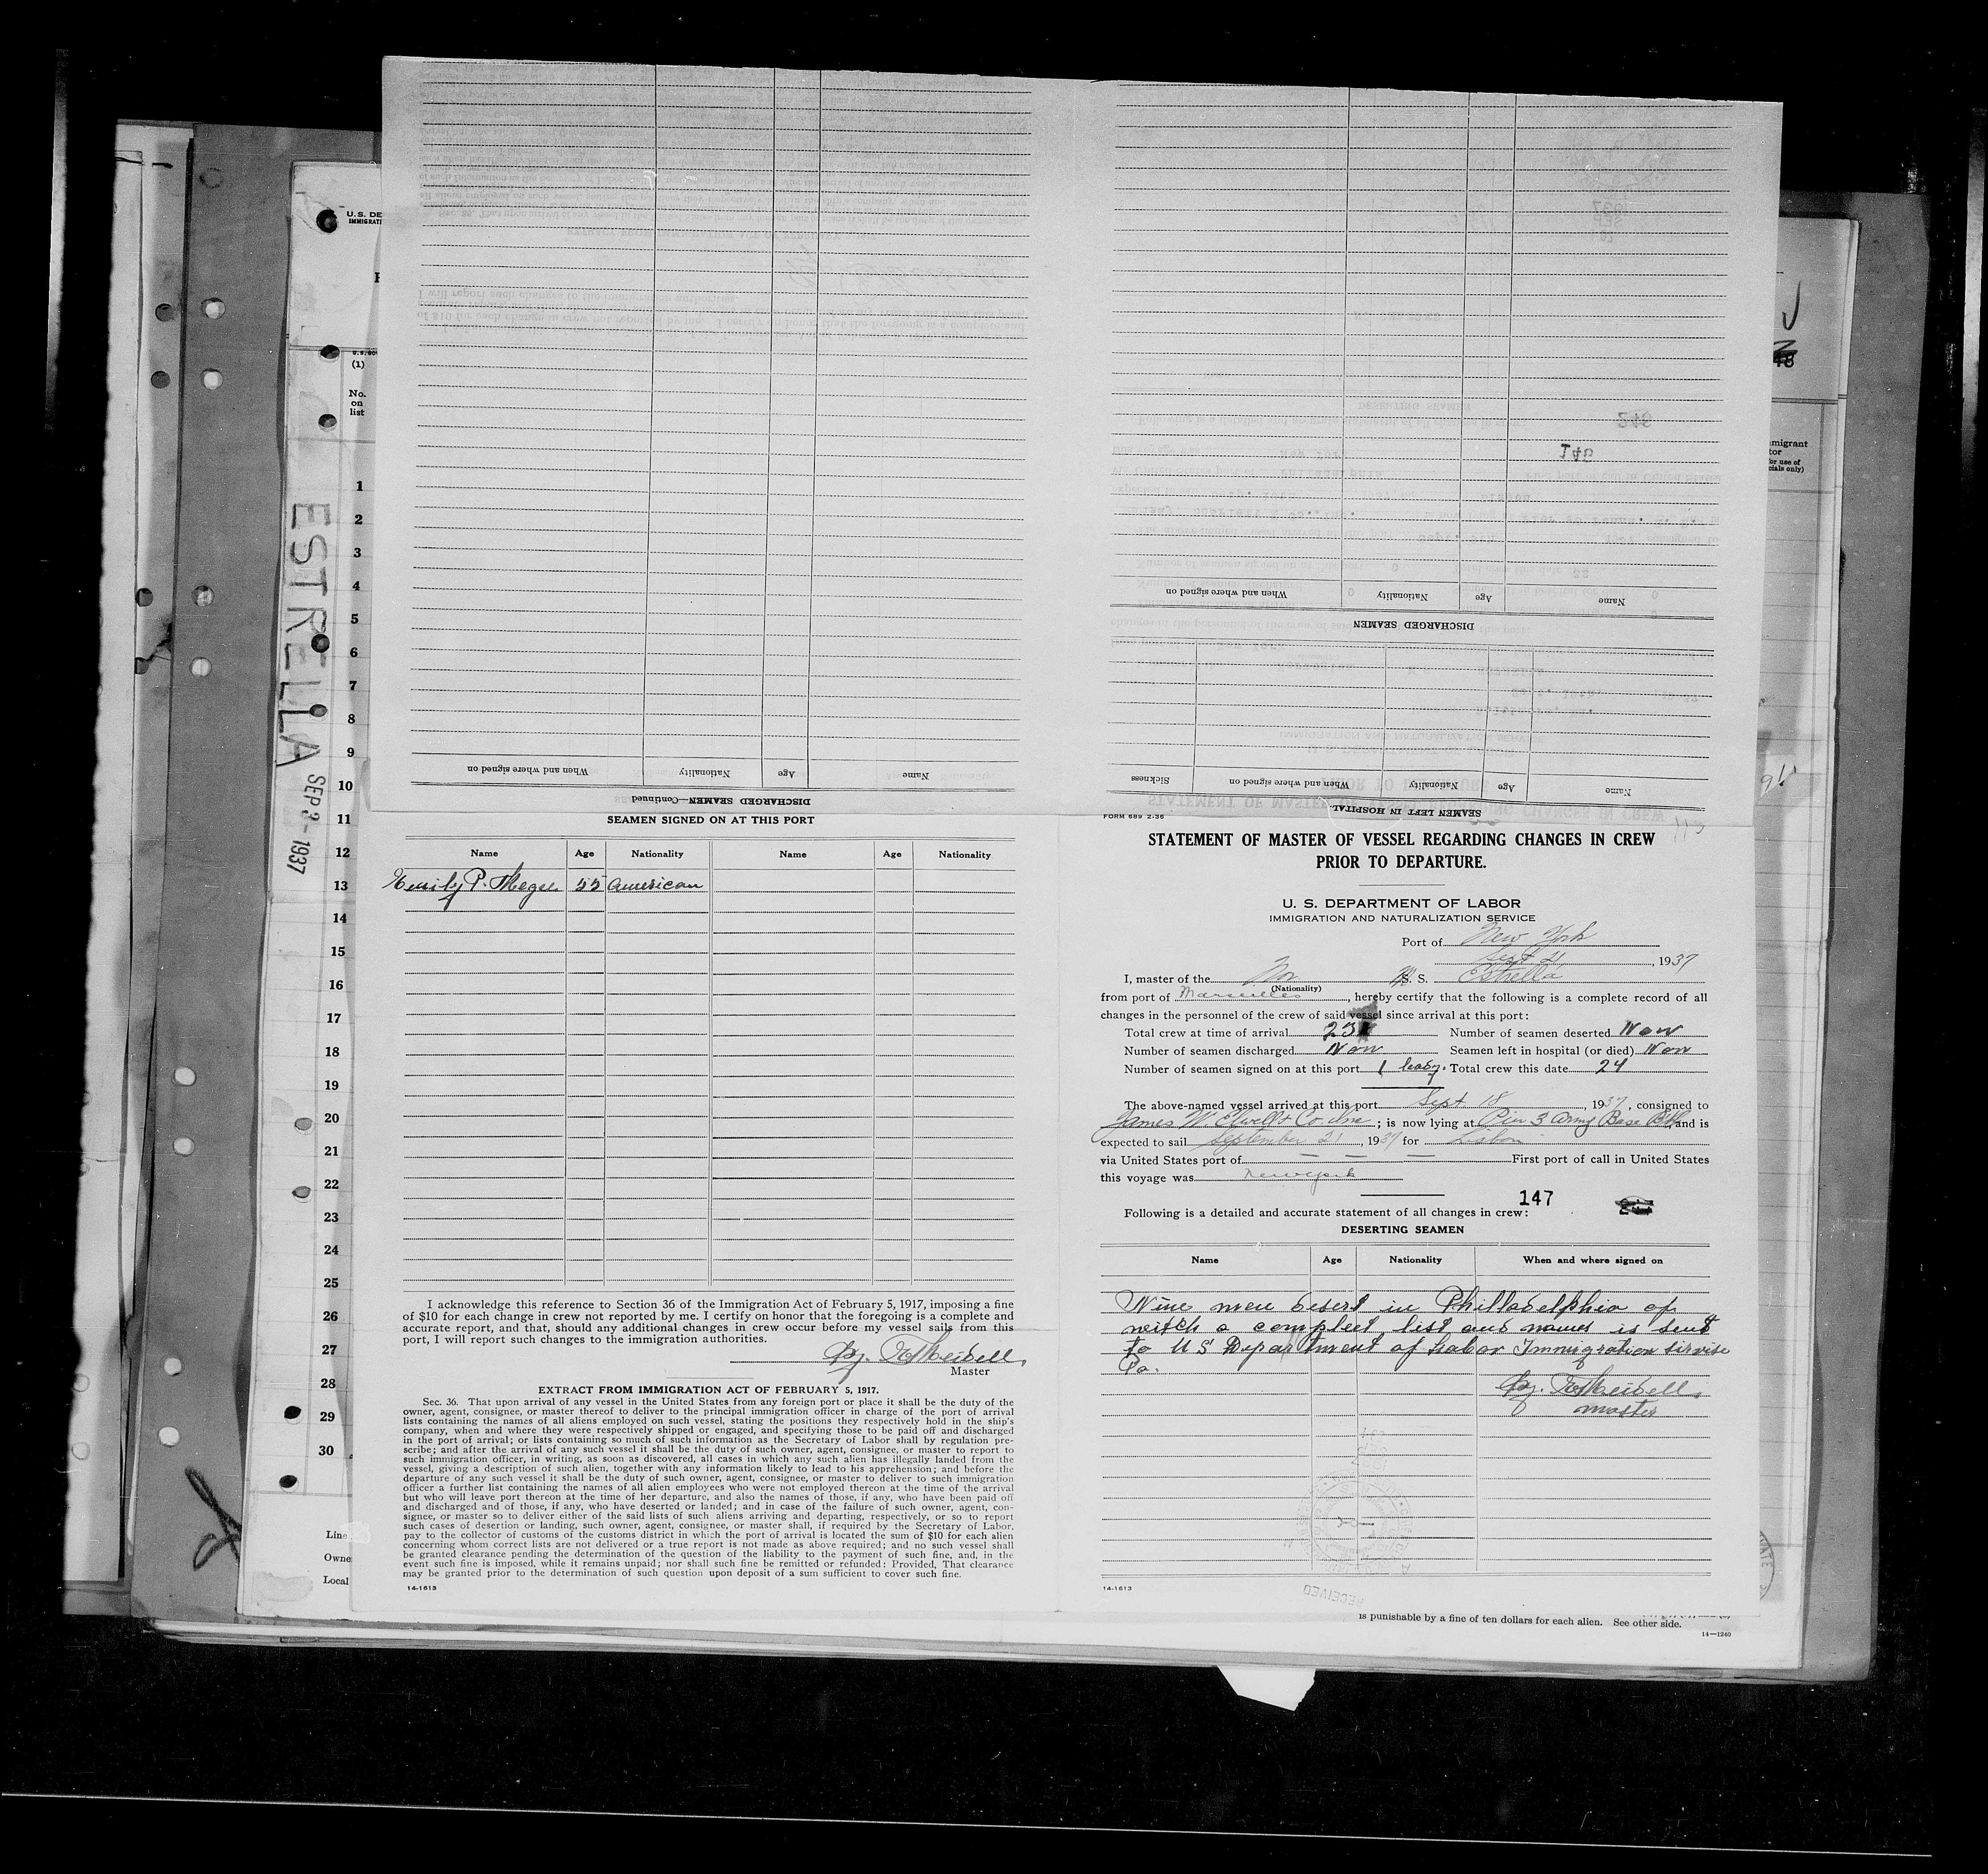 U.S. DE
IMMIGRATI
(1)
No.
on
list
1
2
3
4
5
6
7
8
9
10
11
12
13
14
15
16
17
18
19
20
21
22
23
24
25
26
27
28
29
30
Line
Owne
Local
ESTRELLA
SEP 3 - 1937
DISCHARGED SEAMEN—Continued
Name Age Nationality When and where signed on
DISCHARGED SEAMEN
Name Age Nationality When and where signed on
SEAMEN LEFT IN HOSPITAL
Name Age Nationality When and where signed on Sickness
SEAMEN SIGNED ON AT THIS PORT
Name Age Nationality Name Age Nationality
Emily P. Magee 55 American
I acknowledge this reference to Section 36 of the Immigration Act of February 5, 1917, imposing a fine
of $10 for each change in crew not reported by me. I certify on honor that the foregoing is a complete and
accurate report, and that, should any additional changes in crew occur before my vessel sails from this
port, I will report such changes to the immigration authorities.
Master
EXTRACT FROM IMMIGRATION ACT OF FEBRUARY 5, 1917.
Sec. 36. That upon arrival of any vessel in the United States from any foreign port or place it shall be the duty of the
owner, agent, consignee, or master thereof to deliver to the principal immigration officer in charge of the port of arrival
lists containing the names of all aliens employed on such vessel, stating the positions they respectively hold in the ship's
company, when and where they were respectively shipped or engaged, and specifying those to be paid off and discharged
in the port of arrival; or lists containing so much of such information as the Secretary of Labor shall by regulation pre-
scribe; and after the arrival of any such vessel it shall be the duty of such owner, agent, consignee, or master to report to
such immigration officer, in writing, as soon as discovered, all cases in which any such alien has illegally landed from the
vessel, giving a description of such alien, together with any information likely to lead to his apprehension; and before the
departure of any such vessel it shall be the duty of such owner, agent, consignee, or master to deliver to such immigration
officer a further list containing the names of all alien employees who were not employed thereon at the time of the arrival
but who will leave port thereon at the time of her departure, and also the names of those, if any, who have been paid off
and discharged and of those, if any, who have deserted or landed; and in case of the failure of such owner, agent, con-
signee, or master so to deliver either of the said lists of such aliens arriving and departing, respectively, or so to report
such cases of desertion or landing, such owner, agent, consignee, or master shall, if required by the Secretary of Labor,
pay to the collector of customs of the customs district in which the port of arrival is located the sum of $10 for each alien
concerning whom correct lists are not delivered or a true report is not made as above required; and no such vessel shall
be granted clearance pending the determination of the question of the liability to the payment of such fine, and, in the
event such fine is imposed, while it remains unpaid; nor shall such fine be remitted or refunded: Provided, That clearance
may be granted prior to the determination of such question upon deposit of a sum sufficient to cover such fine.
14-1613
FORM 689 2-36
STATEMENT OF MASTER OF VESSEL REGARDING CHANGES IN CREW
PRIOR TO DEPARTURE.
U. S. DEPARTMENT OF LABOR
IMMIGRATION AND NATURALIZATION SERVICE
Port of New York
Sept 21, 1937
I, master of the Nor M S. S. Estrella
(Nationality)
from port of Marseilles, hereby certify that the following is a complete record of all
changes in the personnel of the crew of said vessel since arrival at this port:
Total crew at time of arrival 23 Number of seamen deserted Non
Number of seamen discharged Non Seamen left in hospital (or died) Non
Number of seamen signed on at this port 1 lady. Total crew this date 24
The above-named vessel arrived at this port Sept 18, 1937, consigned to
James W. Elwell & Co Inc; is now lying at Pier 3 Army Base Bkl and is
expected to sail September 21, 1937 for Lisbon
via United States port of — — — First port of call in United States
this voyage was New York
147
Following is a detailed and accurate statement of all changes in crew:
DESERTING SEAMEN
Name Age Nationality When and where signed on
Nine men desert in Philladelphia of
witch a compleet list and names is sent
to U S Department of Labor Immigration Servise
Pa.
master
14-1613
RECEIVED
is punishable by a fine of ten dollars for each alien. See other side.
14—1240
migrant
tor
for use of
cials only)